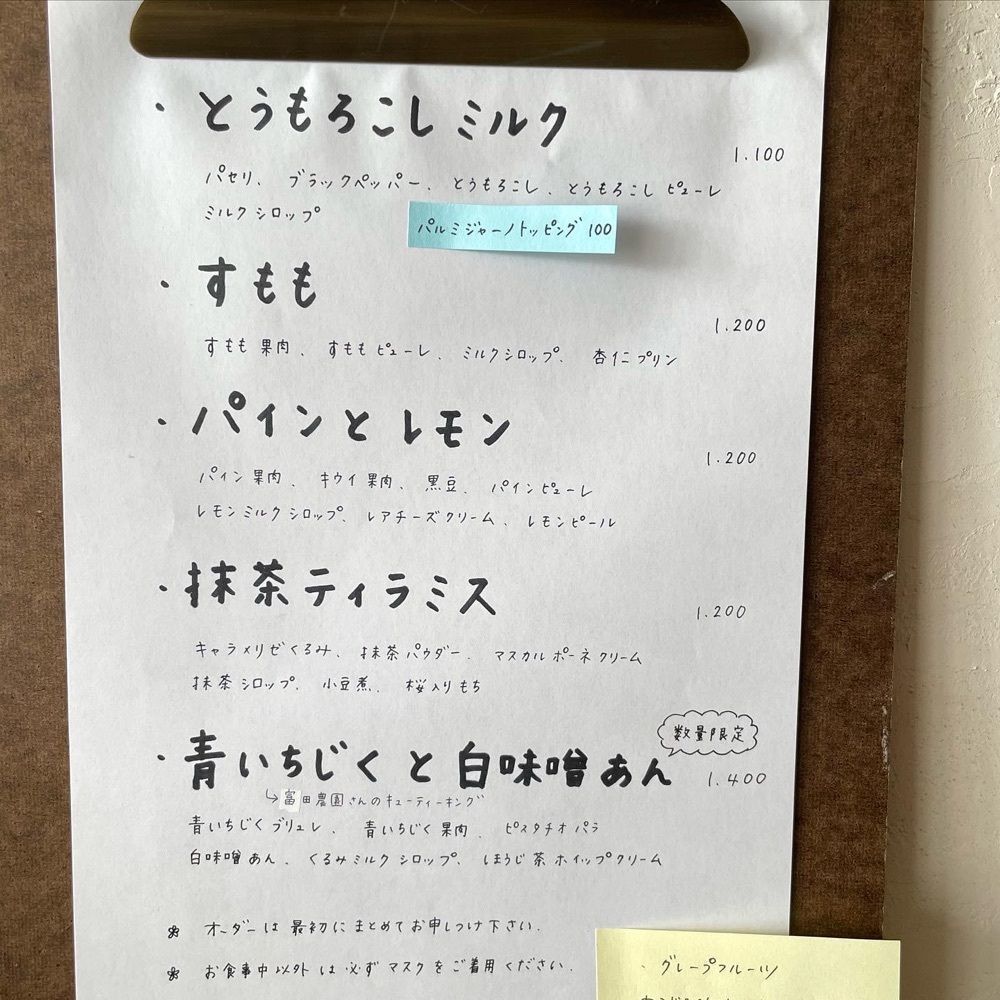 ・とうもろこしミルク
1.100
パセリ、ブラックペッパー、とうもろこし、とうもろこしピューレ
ミルクシロップ
パルミジャーノトッピング 100
・すもも
1.200
すもも果肉、すももピューレ、ミルクシロップ、杏仁プリン
・パインとレモン
1.200
パイン果肉、キウイ果肉、黒豆、パインピューレ
レモンミルクシロップ、レアチーズクリーム、レモンピール
・抹茶ティラミス
1.200
キャラメリゼくるみ、抹茶パウダー、マスカルポーネクリーム
抹茶シロップ、小豆煮、桜入りもち
数量限定
・青いちじくと白味噌あん 1.400
↳富田農園さんのキューティーキング
青いちじくブリュレ、青いちじく果肉、ピスタチオパラ
白味噌あん、くるみミルクシロップ、ほうじ茶ホイップクリーム
オーダーは最初にまとめてお申しつけ下さい.
お食事中以外は必ずマスクをご着用ください.
・グレープフルーツ